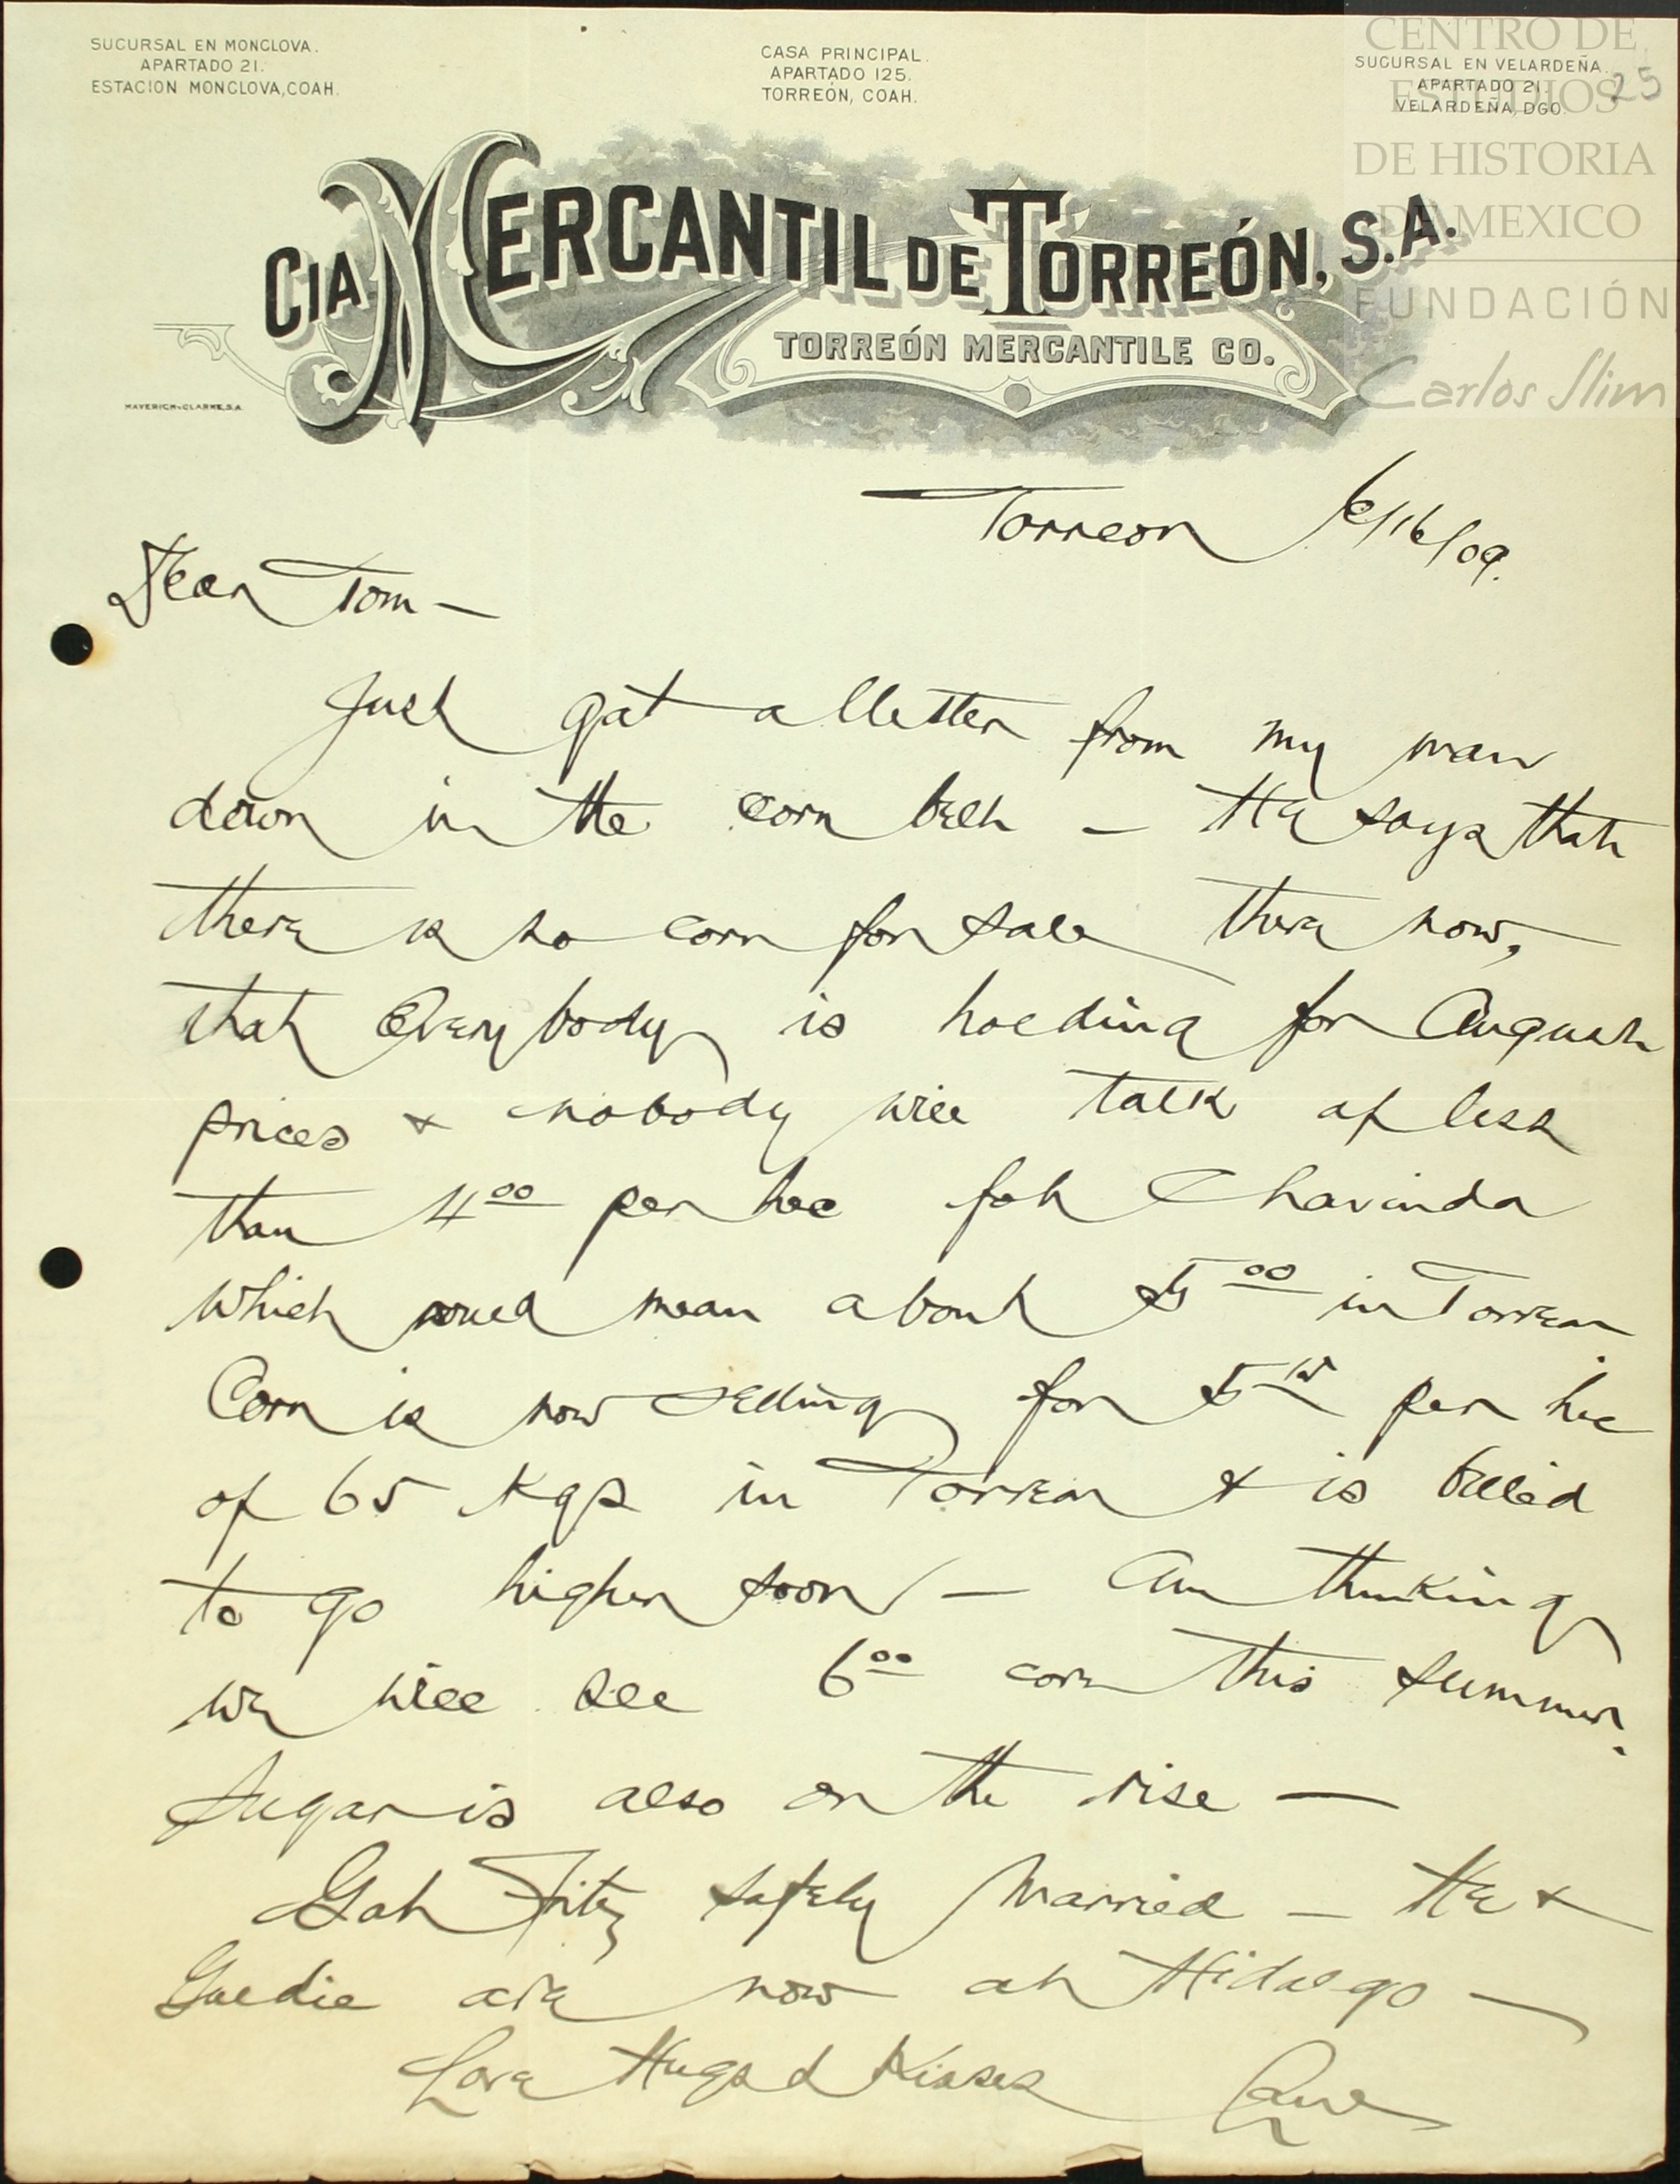 SUCURSAL EN MONCLOVA.
APARTADO 21.
ESTACION MONCLOVA, COAH.
CASA PRINCIPAL.
APARTADO 125.
TORREÓN, COAH.
SUCURSAL EN VELARDEÑA.
APARTADO 21.
VELARDEÑA, DGO.
25
CENTRO DE
ESTUDIOS
DE HISTORIA
DE MEXICO
FUNDACIÓN
Carlos Slim
CIA MERCANTIL DE TORREÓN, S.A.
TORREÓN MERCANTILE CO.
MAVERICK-CLARKE, S.A.
Torreon 6/16/09.
Dear Tom —
Just got a letter from my man
down in the corn belt — He says that
there is no corn for sale there now,
that everybody is holding for August
prices & nobody will talk of less
than 4.00 per hec fob Chavinda
which would mean about 5.00 in Torreon
Corn is now selling for 5 per hec
of 65 Kgs in Torreon & is billed
to go higher soon — Am thinking
we will see 6.00 corn this summer.
Sugar is also on the rise —
Got Fitz safely married — He &
Goldie are now at Hidalgo —
Love Hugs & Kisses